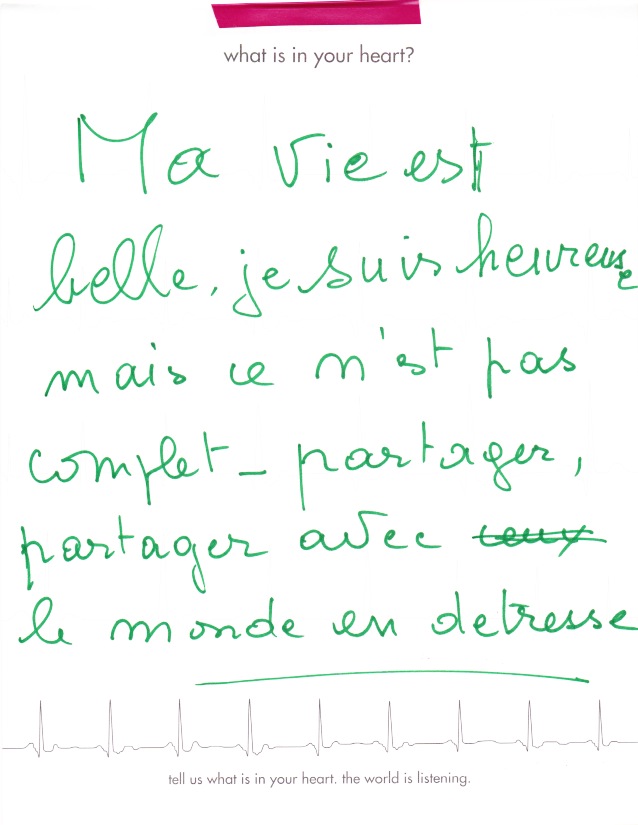 what is in your heart?
Ma vie est
belle, je suis heureuse
mais ce n'est pas
complet – partager,
partager avec ceux
le monde en detresse
tell us what is in your heart. the world is listening.